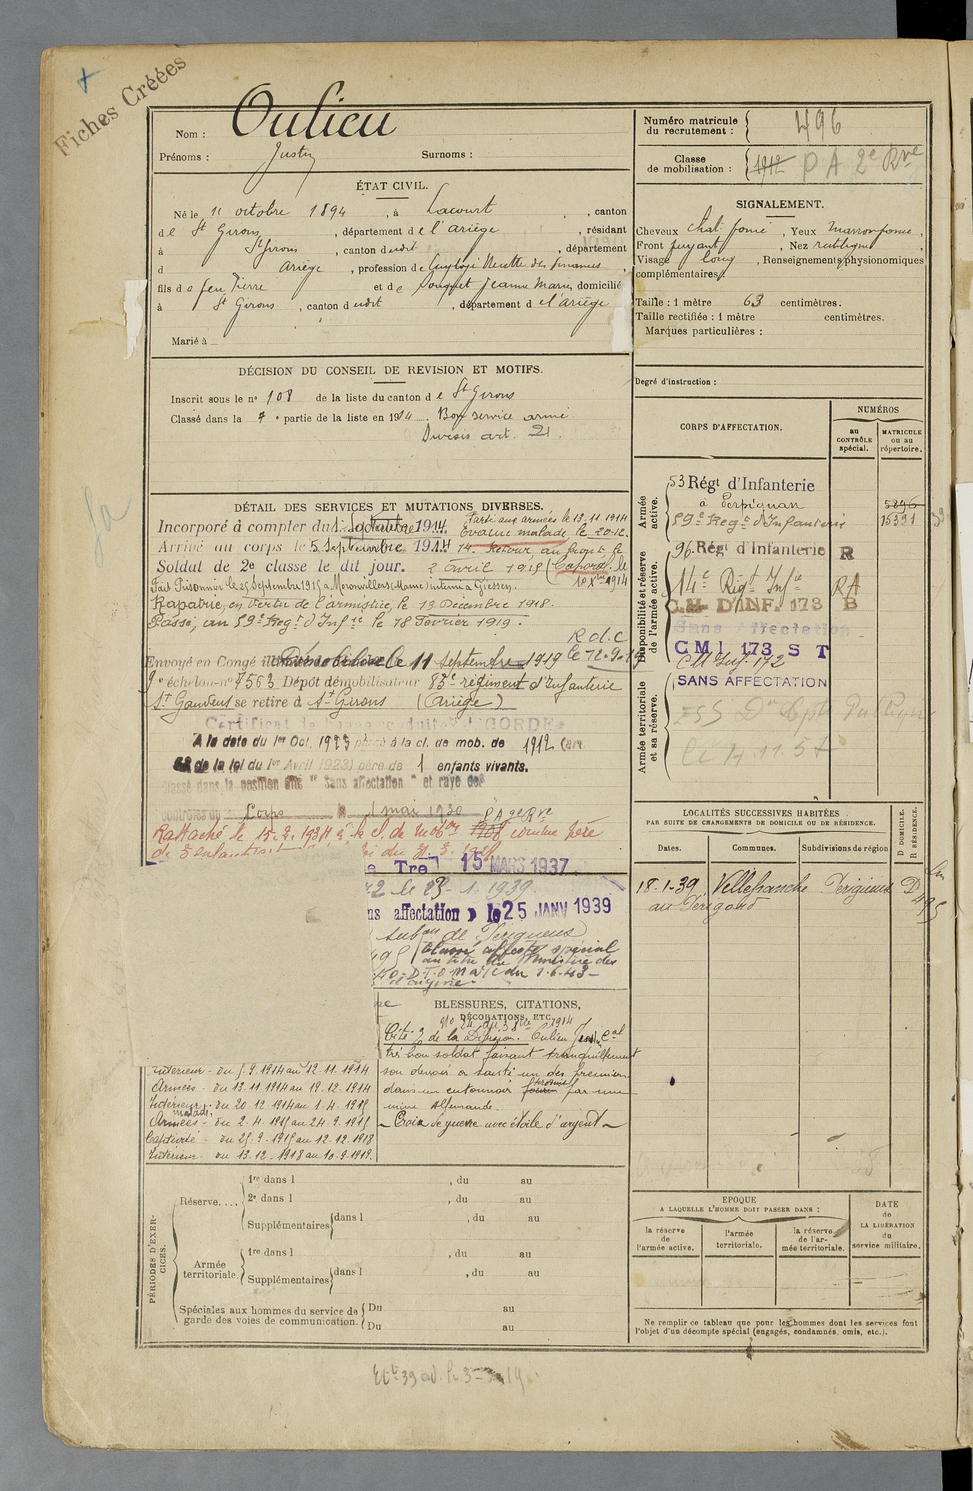 Fiches Créées
Nom : Oulieu
Prénoms : Justin Surnoms :
Numéro matricule du recrutement : 496
Classe de mobilisation : 1912 P A 2e Rve
ÉTAT CIVIL.
Né le 11 octobre 1894, à Lacourt, canton
de St Girons, département de l'ariège, résidant
à St Girons, canton dudit, département
d Ariège, profession de des finances
fils de feu Pierre et de Souquet Jeanne Marie, domiciliés
à St Girons, canton dudit, département de l'ariège
Marié à
SIGNALEMENT.
Cheveux chat. foncé, Yeux marron foncé,
Front fuyant, Nez rectiligne,
Visage long, Renseignements physionomiques
complémentaires :
Taille : 1 mètre 63 centimètres.
Taille rectifiée : 1 mètre centimètres.
Marques particulières :
DÉCISION DU CONSEIL DE REVISION ET MOTIFS.
Inscrit sous le no 108 de la liste du canton de St Girons
Classé dans la 7e partie de la liste en 1914. Bon service armé
Sursis art. 21.
Degré d'instruction :
CORPS D'AFFECTATION.
NUMÉROS
au CONTRÔLE spécial.
MATRICULE ou au répertoire.
Armée active.
53 Régt d'Infanterie
à Perpignan 5896
59e Régt d'Infanterie 15391
Disponibilité et réserve de l'armée active.
96 Régt d'Infanterie R
14e Régt Infie RA
C.M. D'INF. 173 B
Sans Affectation
C M I 173 S T
CM Inf. 172
Armée territoriale et sa réserve.
SANS AFFECTATION
DÉTAIL DES SERVICES ET MUTATIONS DIVERSES.
Incorporé à compter du 1 septembre 1914. Parti aux armées le 13.11.1914
Evacué malade le 20.12.
Arrivé au corps le 5 Septembre 1914 14. Retour au front le
Soldat de 2e classe le dit jour. 2 avril 1915 (Caporal le
1914
Fait Prisonnier le 25 Septembre 1915 à Moronvillers (Marne) interné à Giessen.
Rapatrié, en vertu de l'armistice, le 13 Decembre 1918.
Passé, au 59e Régt d'Infie le 18 Fevrier 1919.
R d. C
Envoyé en Congé le 11 septembre 1919 le 12.9.19
9e échelon no 7563 Dépôt démobilisateur 83e régiment d'Infanterie
St Gaudens se retire à St Girons (Ariège)
A la date du 1er Oct. 1923 passé à la cl. de mob. de 1912 (art.
58 de la loi du 1er Avril 1923) père de 1 enfants vivants.
Classé dans la position dite "Sans affectation" et rayé des
controles du Corps le 1 mai 1930 P A 2e Rve
Rattaché le 15.2.1934 à la cl. de mobon 1908 comme père
de 3 enfants
15 MARS 1937
le 23-1.1939.
ns affectation » le 25 JANV 1939
Subon de Périgueux
Classé affecté spécial
au titre du Ministère des
du 1.6.43
d'origine
BLESSURES, CITATIONS, DÉCORATIONS, ETC.
Cité à l'o. de la Division. Oulieu Justin Cal
très bon soldat faisant tranquillement
son devoir a sauté un des premiers
dans un entonnoir formé par une
mine Allemande.
Croix de guerre avec étoile d'argent
Interieur - du 5.9.1914 au 12.11.1914
Armées - du 13.11.1914 au 19.12.1914
Intérieur malade - du 20.12.1914 au 1.4.1915
Armées - du 2.4.1915 au 24.9.1915
Captivité - du 25.9.1915 au 12.12.1918
Intérieur - du 13.12.1918 au 10.9.1919.
LOCALITÉS SUCCESSIVES HABITÉES
PAR SUITE DE CHANGEMENTS DE DOMICILE OU DE RÉSIDENCE.
Dates. Communes. Subdivisions de région D DOMICILE. R RÉSIDENCE.
18-1-39 Villefranche Périgueux D
du Périgord
PÉRIODES D'EXERCICES.
Réserve....
1re dans l , du au
2e dans l , du au
Supplémentaires dans l , du au
Armée territoriale.
1re dans l , du au
Supplémentaires dans l , du au
Spéciales aux hommes du service de garde des voies de communication.
Du au
Du au
EPOQUE
A LAQUELLE L'HOMME DOIT PASSER DANS :
la réserve de l'armée active.
l'armée territoriale.
la réserve de l'armée territoriale.
DATE de LA LIBÉRATION du service militaire.
Ne remplir ce tableau que pour les hommes dont les services font
l'objet d'un décompte spécial (engagés, condamnés, omis, etc.).